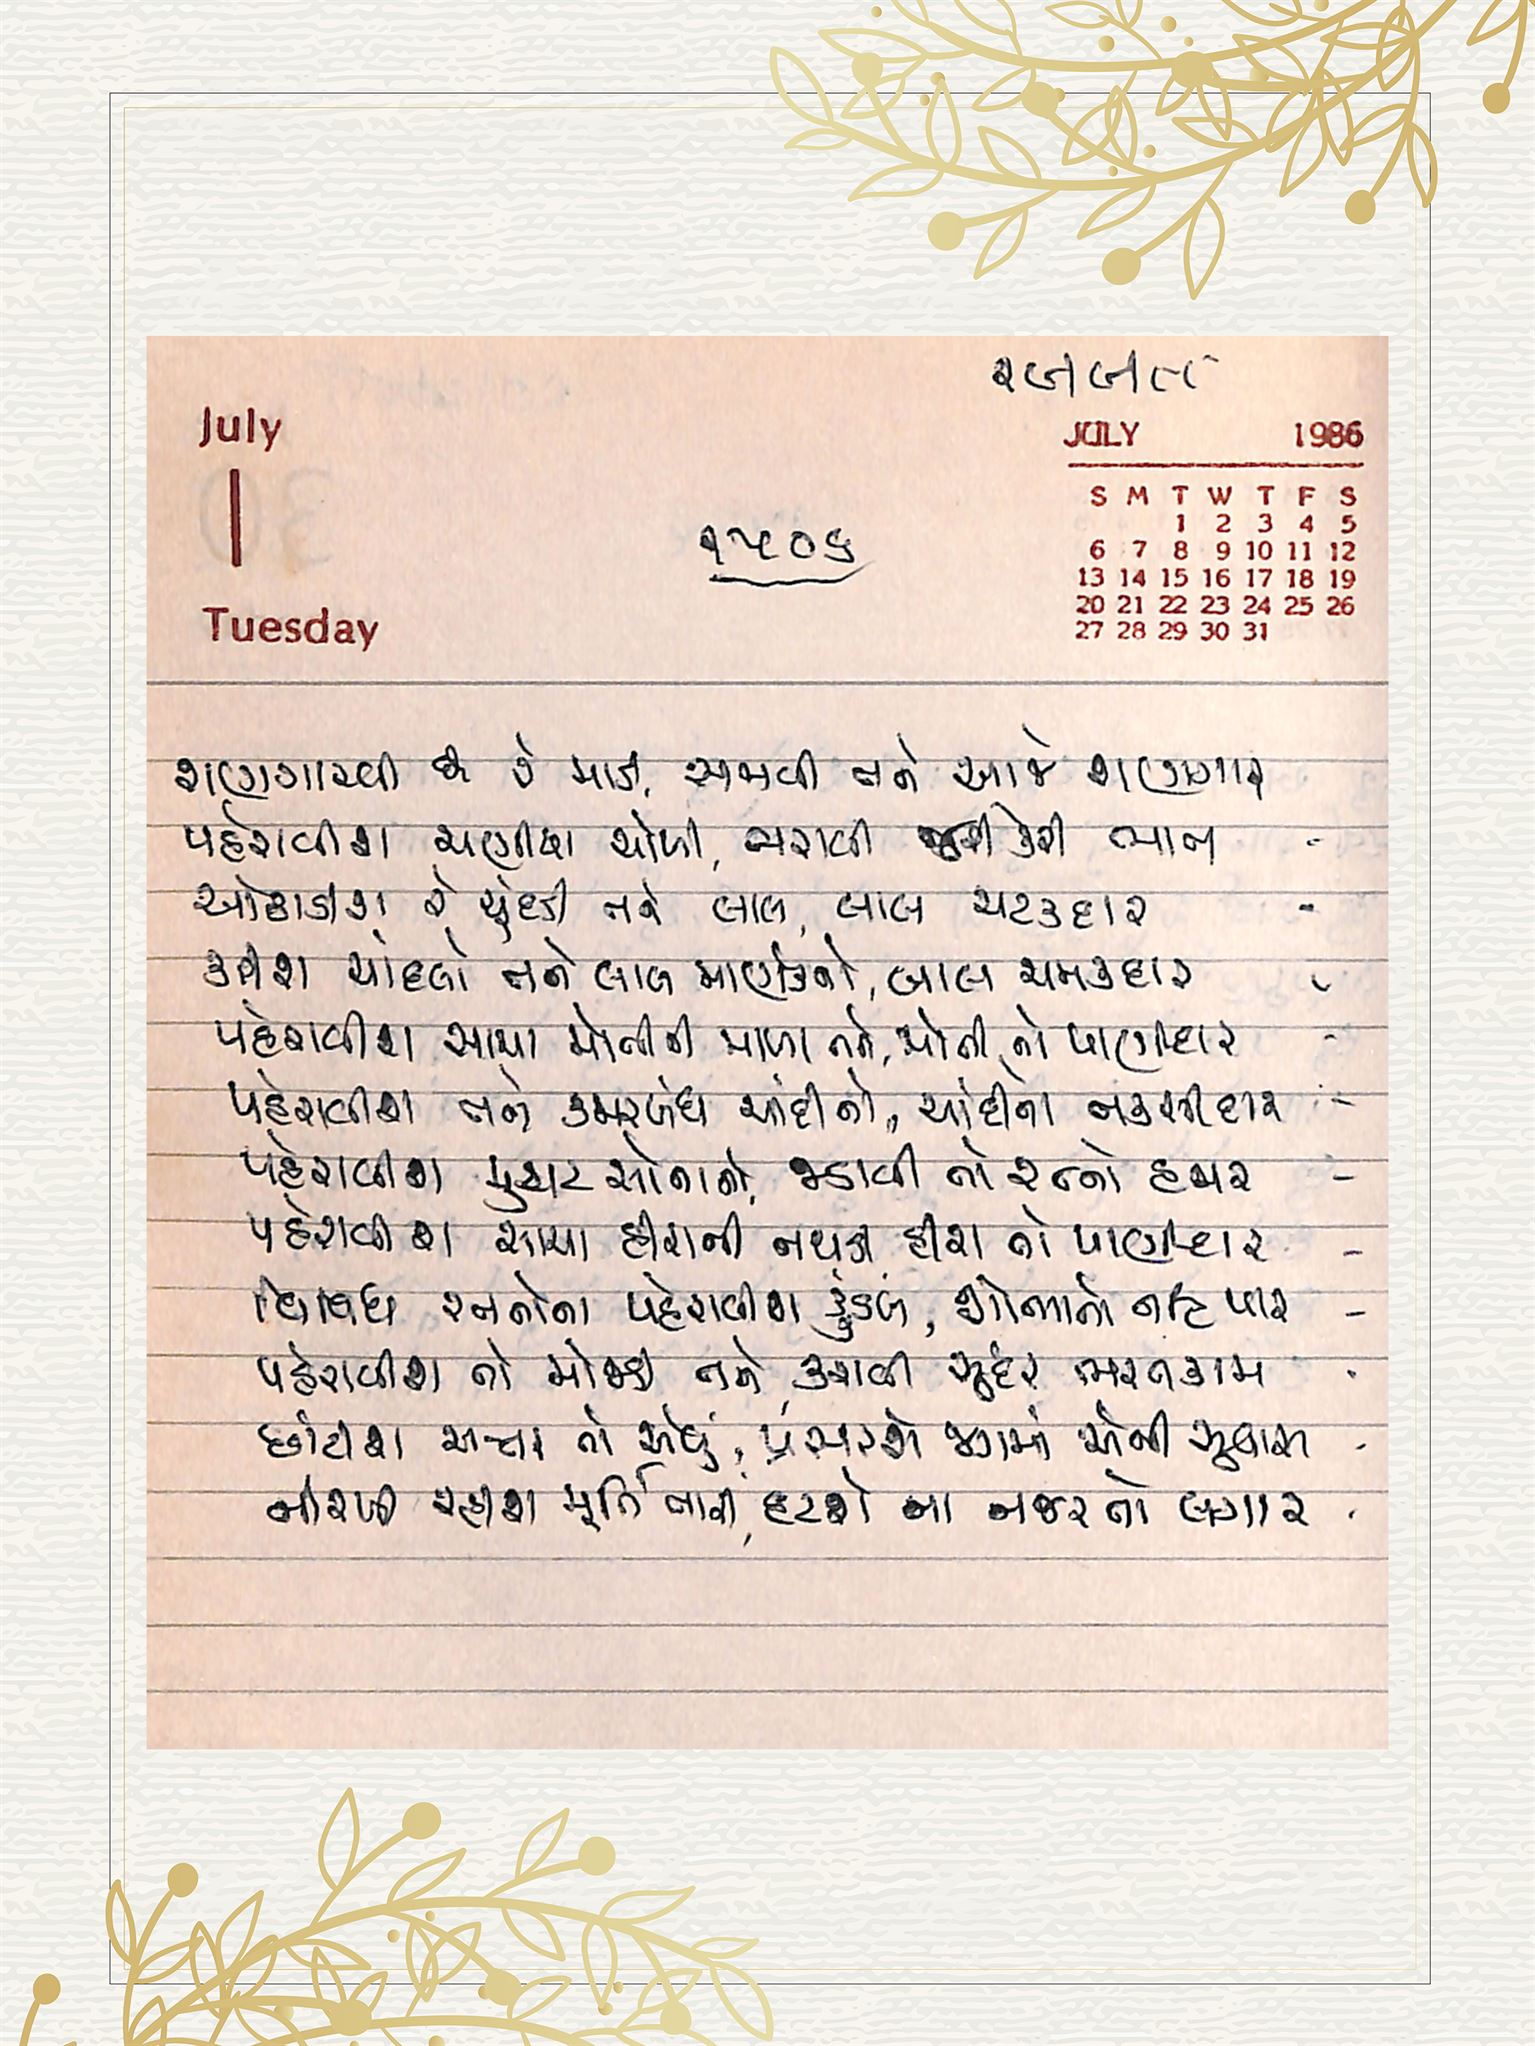 July
1
Tuesday
JULY 1986
S M T W T F S
1 2 3 4 5
6 7 8 9 10 11 12
13 14 15 16 17 18 19
20 21 22 23 24 25 26
27 28 29 30 31
૧૫૦૬
શણગારવી છે રે માડી, સજાવી તને આજે શણગાર
પહેરાવીશ ચણીયા ચોળી, ભરાવી જરી કેરી ભાત -
ઓઢાડીશ રે ચુંદડી તને લાલ, લાલ ચટકદાર -
કરીશ ચાંદલો તને લાલ માણેકનો, લાલ ચમકદાર
પહેરાવીશ સાચા મોતીની માળા તને, મોતી તો પાણીદાર -
પહેરાવીશ તને કમરબંધ ચાંદીનો, ચાંદીનો નકશીદાર -
પહેરાવીશ મુગટ સોનાનો, જડાવી તો રત્નો હજાર -
પહેરાવીશ સાચા હીરાની નથડી હીરા તો પાણીદાર -
વિવિધ રતનોના પહેરાવીશ કુંડળ, શોભાનો નહિ પાર -
પહેરાવીશ તો મોજડી તને, કરાવી સુંદર ભરતકામ
છાંટીશ અત્તર તો એવું, પ્રસરશે જગમાં એની સુવાસ -
નીરખી રહીશ મૂર્તિ તારી, હટશે ના નજર તો લગાર